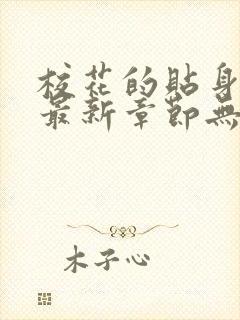 校花的貼身
最新章節無
木子心